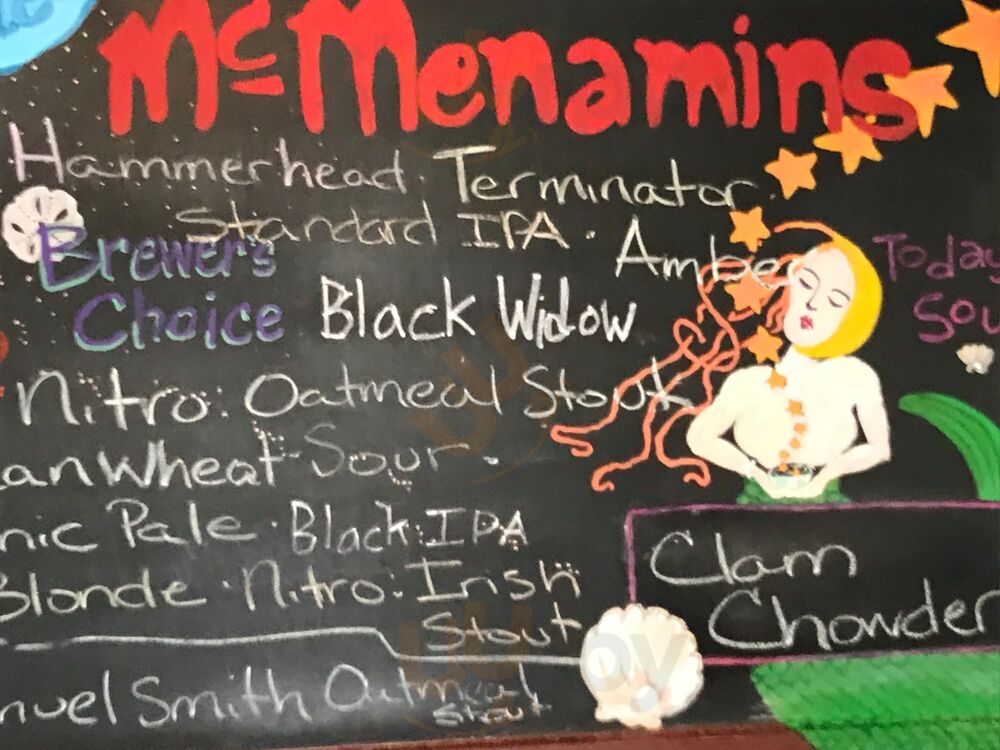 McMenamins
Hammerhead · Terminator ·
Standard IPA · Amber
Brewer's
Choice Black Widow
Today
Sou
Nitro: Oatmeal Stout
anWheat-Sour ·
nic Pale · Black IPA
Blonde · Nitro: Irish
Stout
Clam
Chowder
nuel Smith Oatmeal
Stout